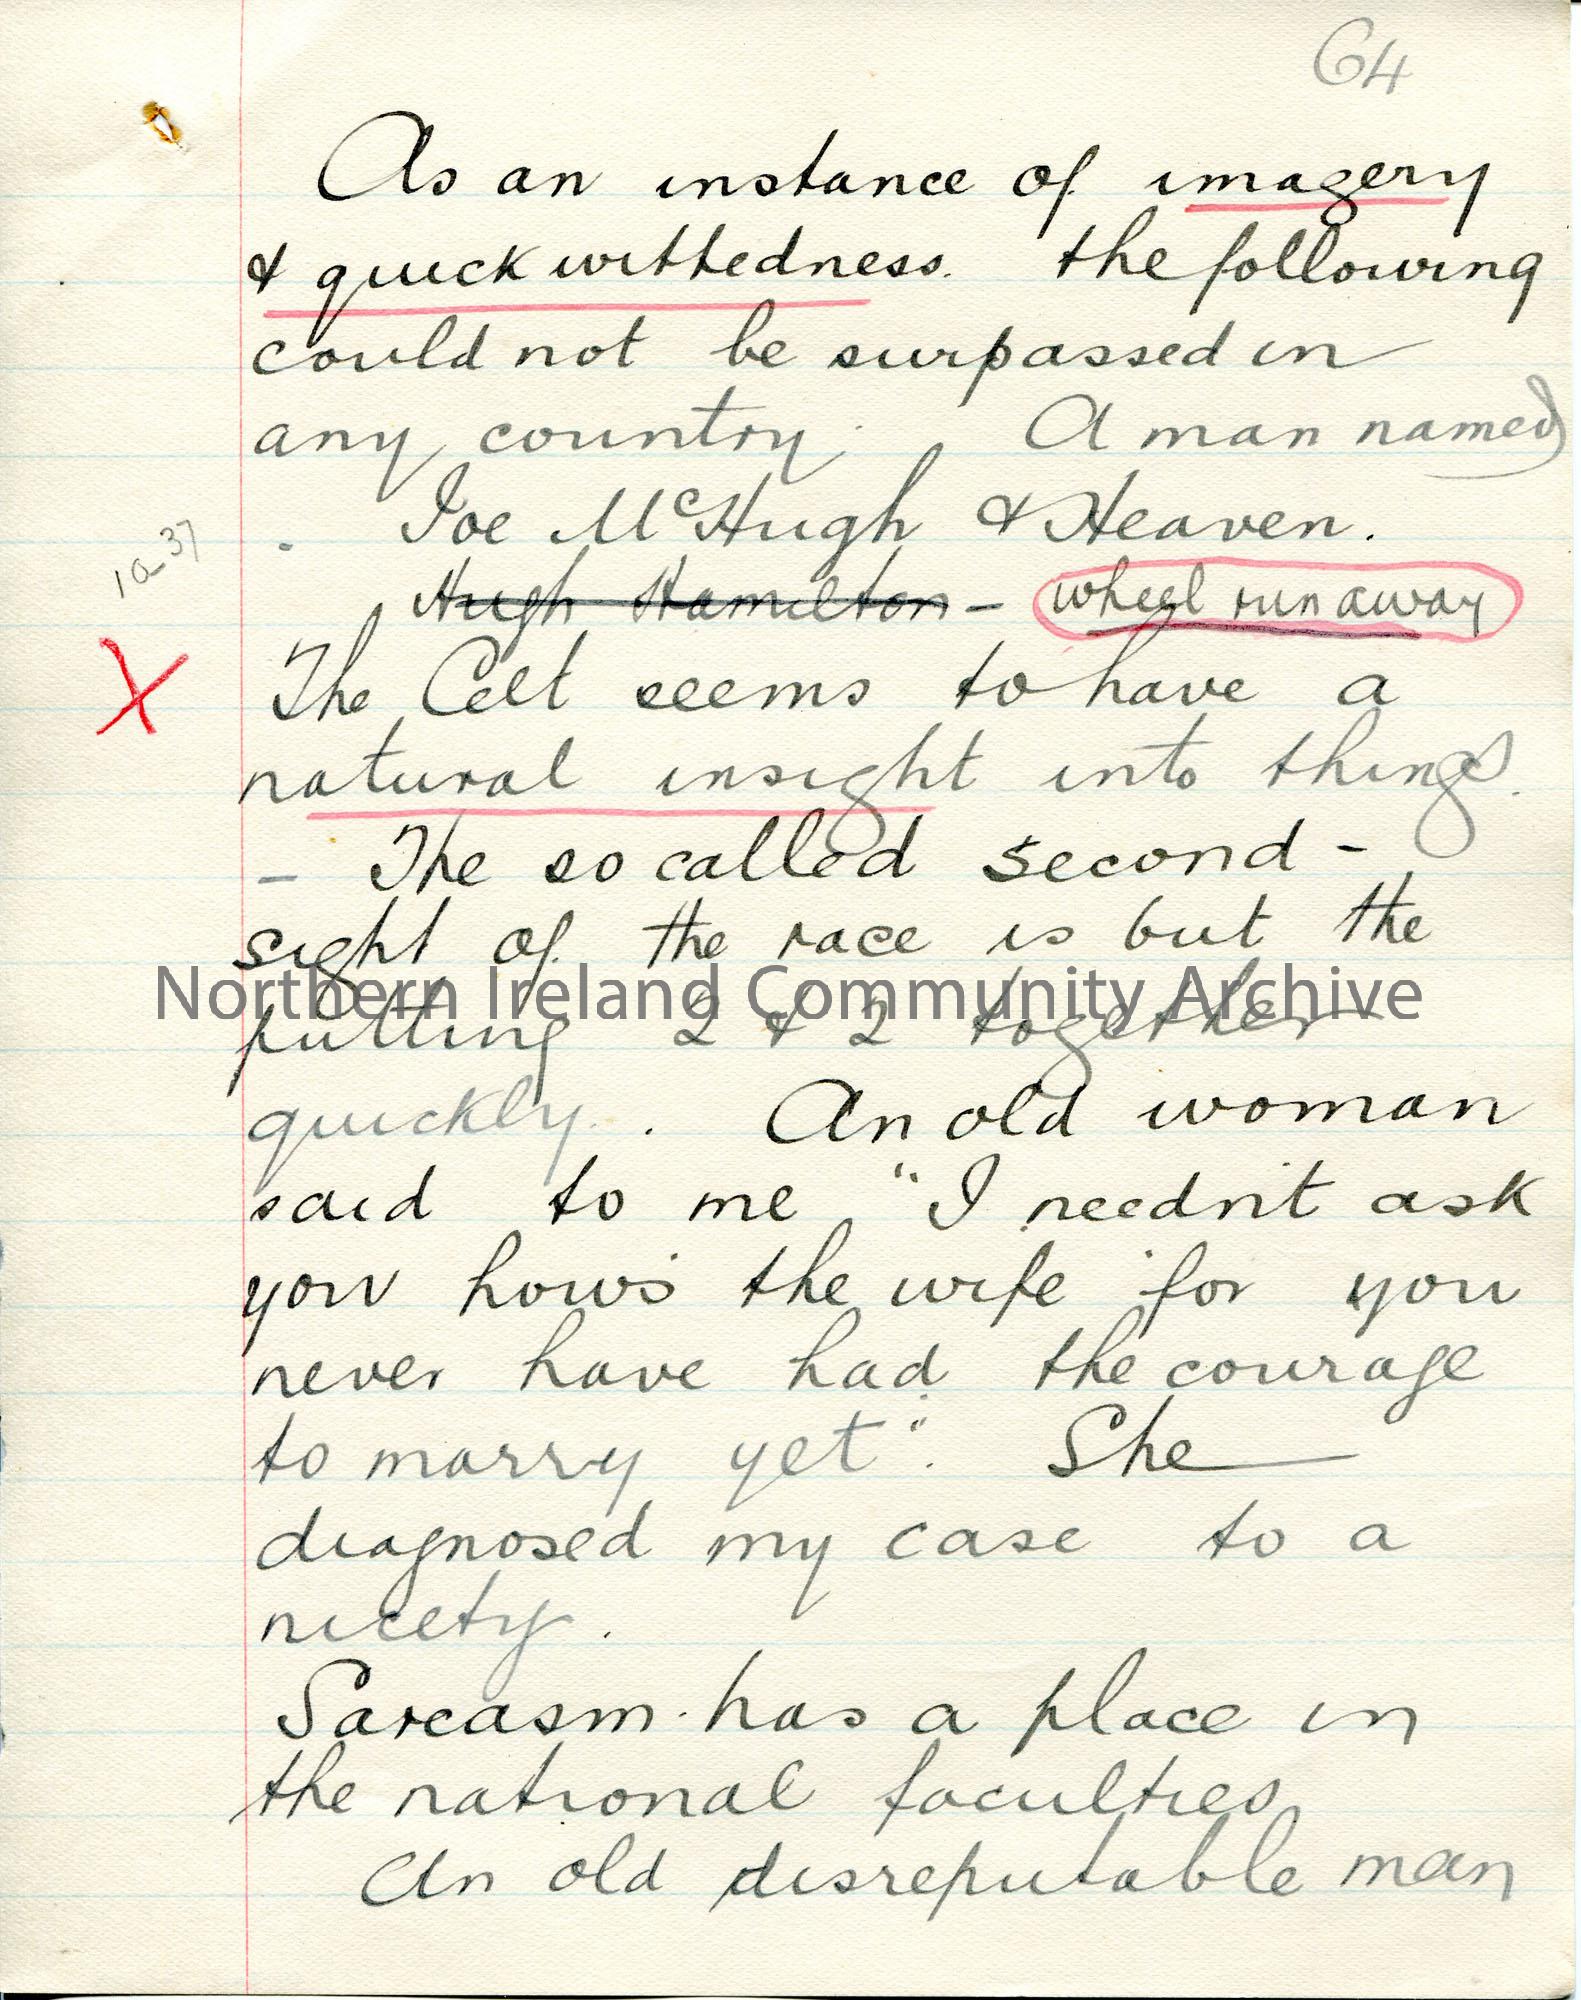 64
As an instance of imagery
& quick wittedness. the following
could not be surpassed in
any country. A man named
Joe McHugh & Heaven.
1a-37
Hugh Hamilton - wheel run away
X The Celt seems to have a
natural insight into things.
- The so called second-
sight of the race is but the
Northern Ireland Community Archive
putting 2 & 2 together
quickly. . An old woman
said to me "I needn't ask
you how's the wife for you
never have had the courage
to marry yet". She
diagnosed my case to a
nicety.
Sarcasm has a place in
the national faculties
An old disreputable man